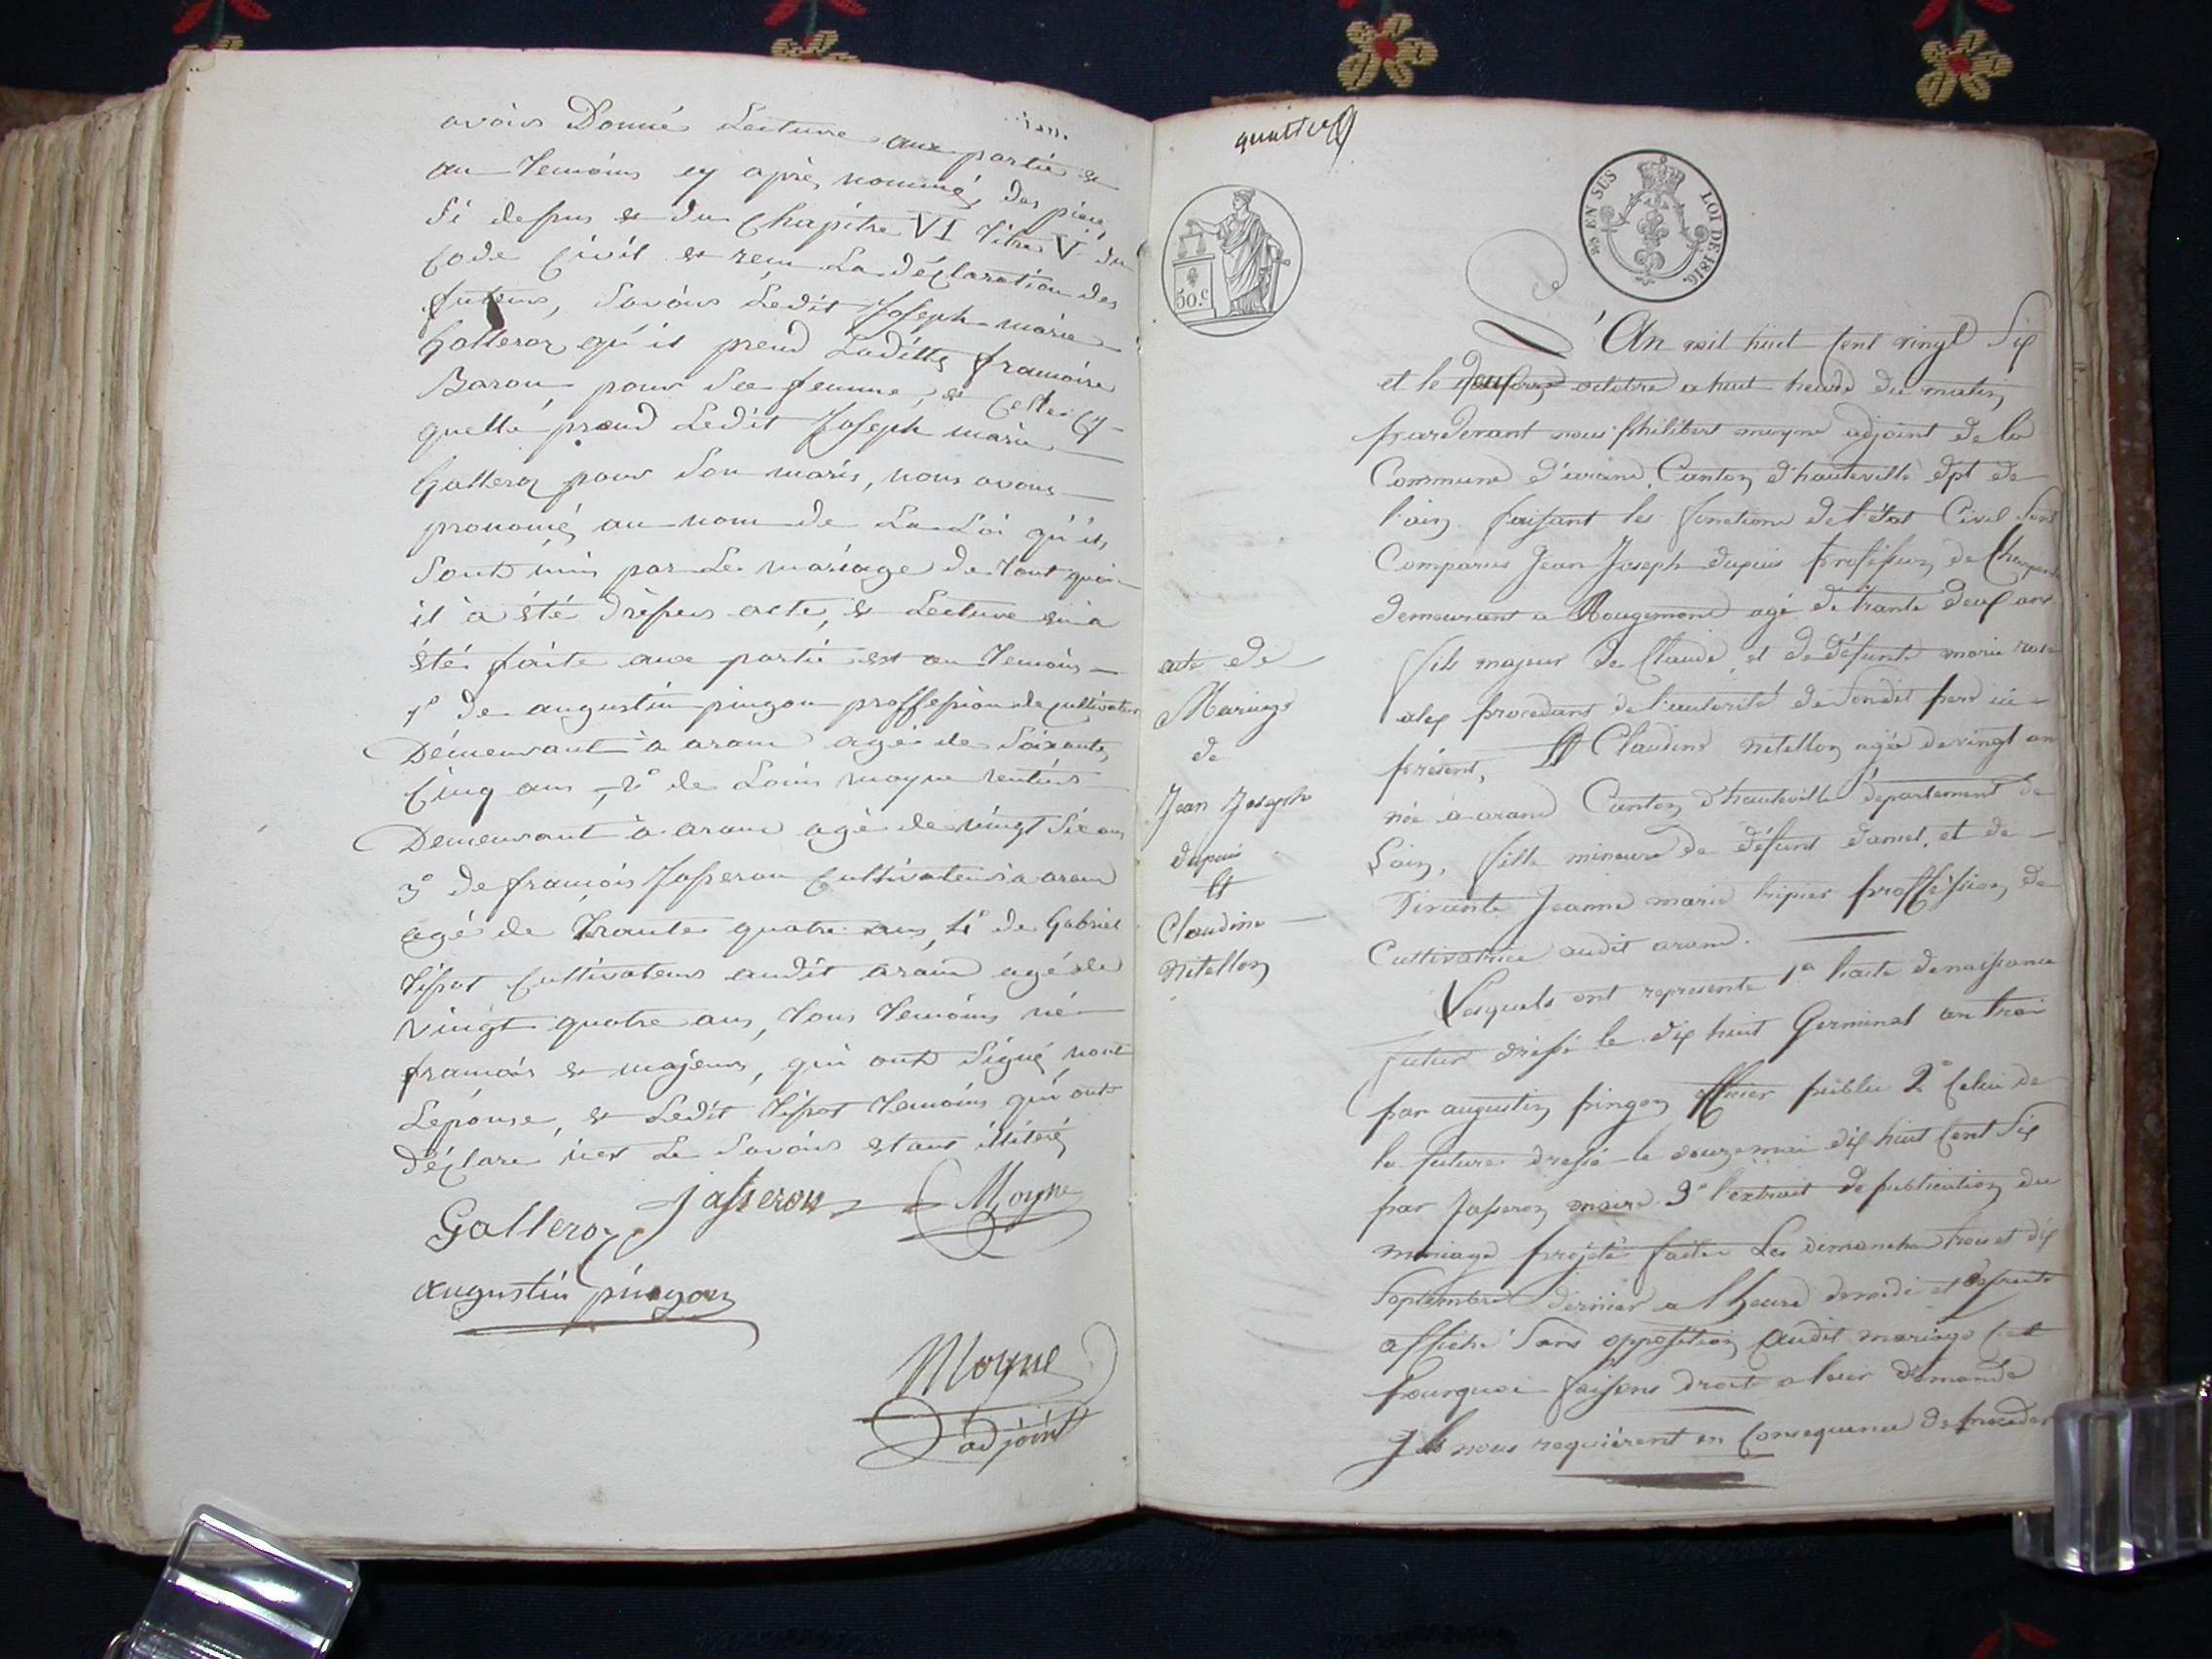 avoir Donné Lecture aux partie et
au temoins cy après nommé, des pièce,
Si depus et du Chapitre VI titre V du
Code Civil et reçu La déclaration des
futeurs, Savoir Ledit Joseph marie
Galleroz qu'il prend Laditte framoise
Baron pour Sa femme, et Celle Cy
quelle prend Ledit Joseph marie
Galleroz pour Son maris, nous avons
pronomcé au nom de La Loi qu'ils
Sont unis par Le mariage de tout quoi
il à été drèpus acte, et Lecture en a
été faite aux partie est au temoins
1° de augustin pingon proffession de cultivateur
Demeurant à aram agé de Soixante
Cinq ans, 2° de Louis moyne rentiers
Demeurant à aram agé de vingt Six ans
3° de framois Jasseron Cultivateurs a aram
agé de trante quatre ans, 4° de Gabriel
tipot Cultivateurs audit aram agé de
vingt quatre ans, tous temoins né
framois et majeurs, qui ont Signé, nont
Lepouse, et Ledit tipot temoins qui ont
déclaré ne Le Savoir etant illiteré
Galleroz Jasseron Moyne
augustin pingon
Moyne
adjoint
quatre
EN SUS LOI DE 1816.
50.c
L'An mil huit Cent vingt Six
et le octobre a huit heure du matin
pardevant nous philibert moyne adjoint de la
Commune d'arand, Canton d'hauteville dpt de
l'ain faisant les fonctions de l'état Civil Sont
Comparus Jean Joseph dupuis profession de Charpentier
demeurant a Rougemont agé de trante deux ans
fils majeur de Claude, et de défunte marie rose
alex procedant de l'autorité de Sondit pere ici
présent, Et Claudine nitellon agée de vingt an
née à arand Canton d'hauteville département de
Lain, fille mineure de défunt daniel, et de
vivante Jeanne marie tripier proffession de
Cultivatrice audit arand.
Lesquels ont représenté 1° l'acte de naissance
futur dréssé le dix huit Germinal an trois
par augustin pingon officier public 2° Celui de
la future dressé le douze mai dix huit Cent Six
par Jasseron maire 3° l'extrait de publication du
mariage projeté faites Les dimanche trois et dix
Septembre dernier a l'heure de midi et
affiché Sans opposition audit mariage C'est
pourquoi faisons droit a leur demande
Ils nous requièrent en Consequence de proceder
acte de
Mariage
de
Jean Joseph
dupuis
Et
Claudine
Nitellon